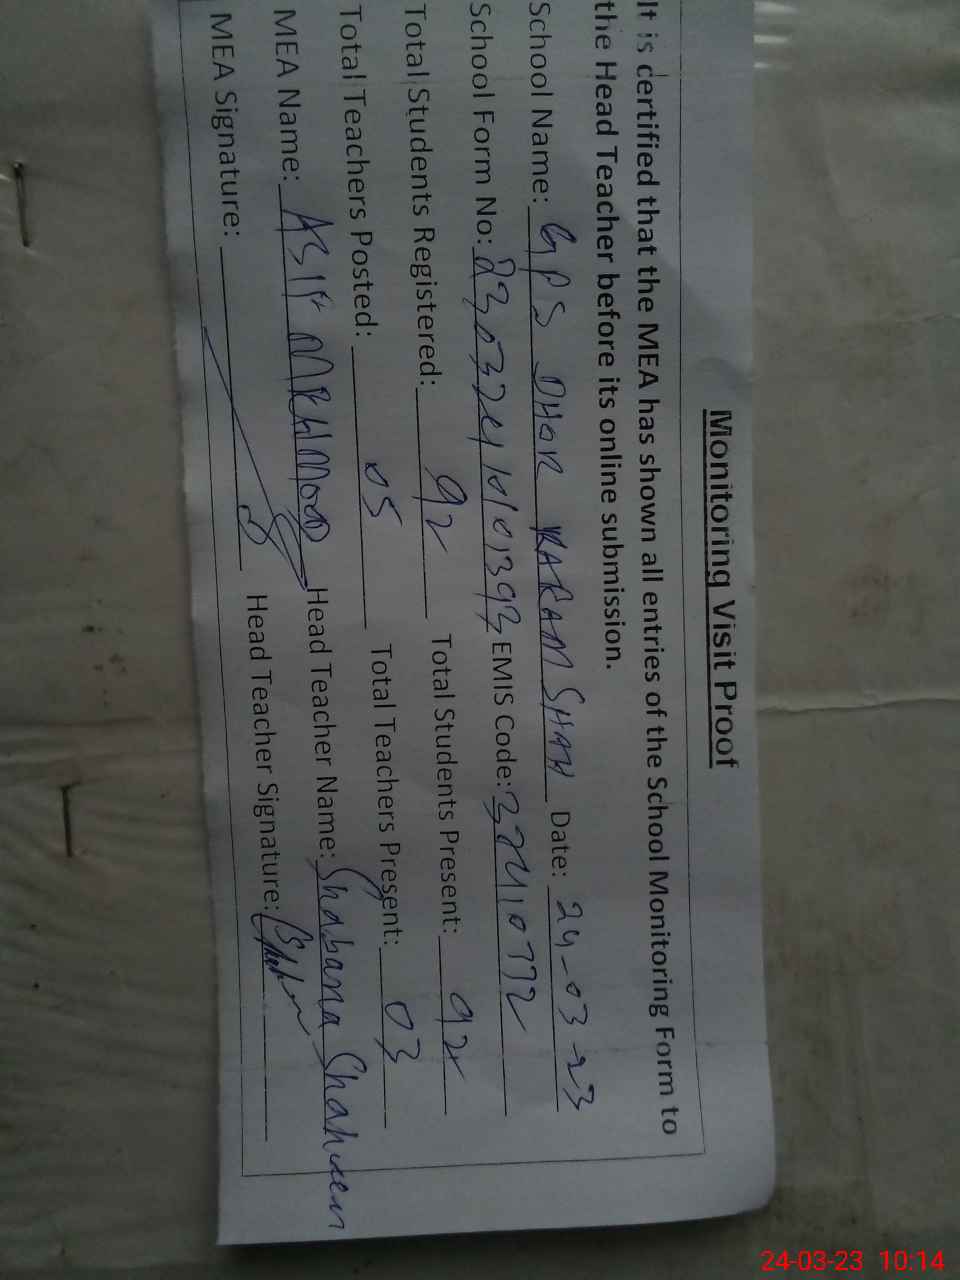 Monitoring Visit Proof
It is certified that the MEA has shown all entries of the School Monitoring Form to
the Head Teacher before its online submission.
School Name: GPS DHOR KARAM SHAH Date: 24-03-23
School Form No: EMIS Code: 32410772
Total Students Registered: 92 Total Students Present: 92
Total Teachers Posted: 05 Total Teachers Present: 03
MEA Name: ASIF MEHMOOD Head Teacher Name: Shabana Shaheen
MEA Signature: Head Teacher Signature:
24-03-23 10:14